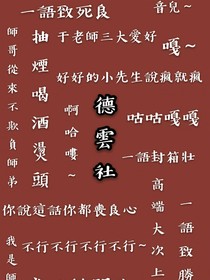 一語致死良
音兒~
于老師三大愛好
嘎~
抽煙喝酒燙頭
師哥從來不欺負師弟
好好的小先生說瘋就瘋
啊哈嘍~
德雲社
咕咕嘎嘎
一語封箱壯
高端大次上
一語致勝
你說這話你都喪良心
不行不行不行不行~
我是師